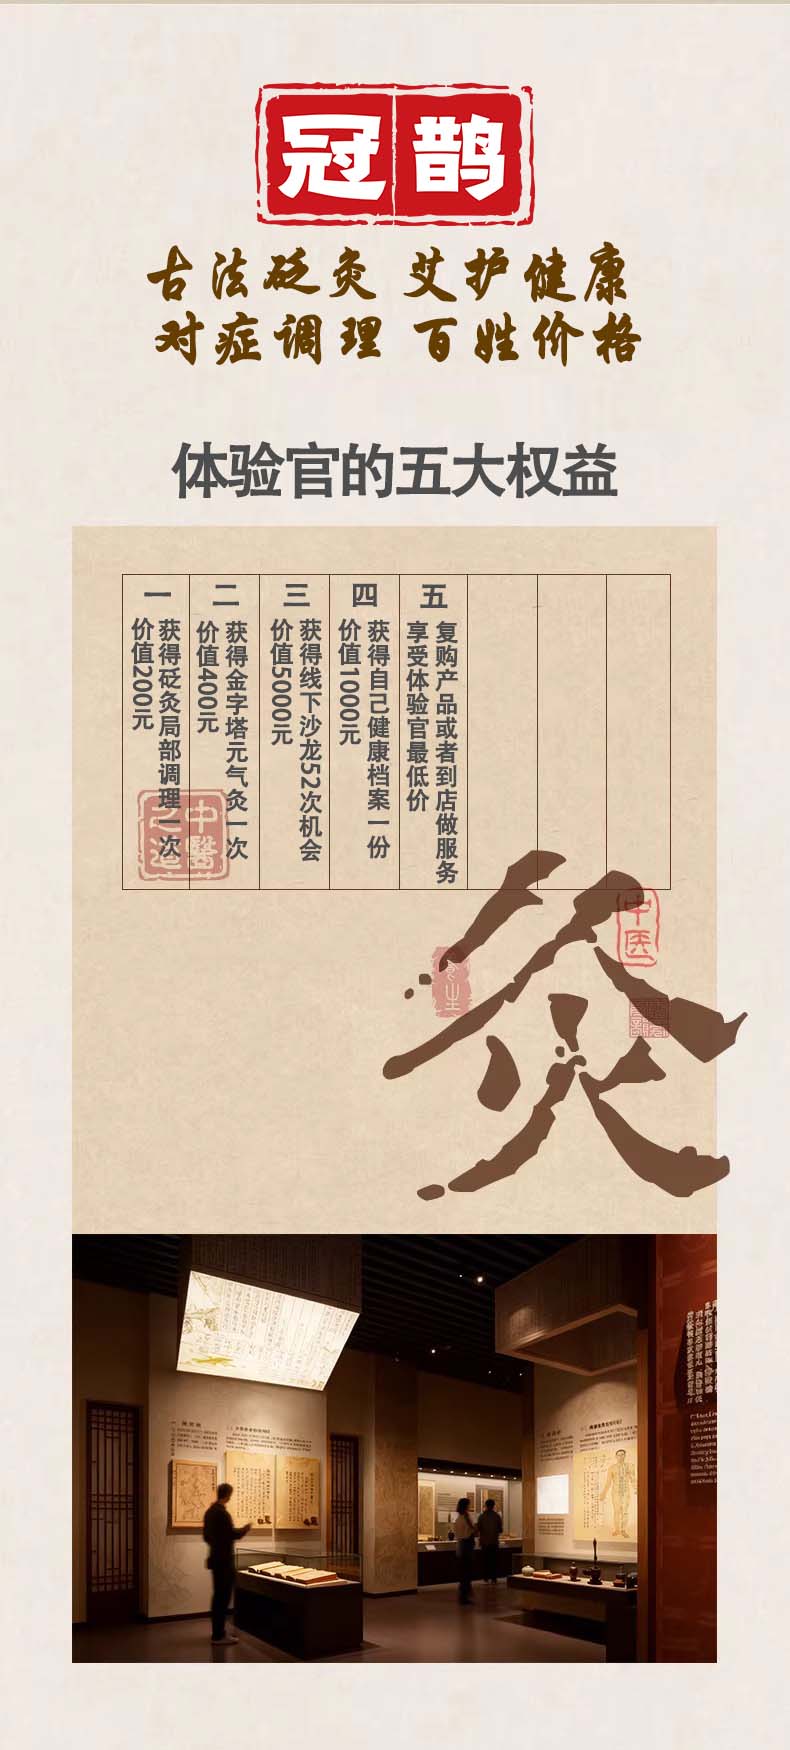 冠鹊
古法砭灸 艾护健康
对症调理 百姓价格
体验官的五大权益
一
获得砭灸局部调理一次
价值200元
二
获得金字塔元气灸一次
价值400元
三
获得线下沙龙52次机会
价值5000元
四
获得自己健康档案一份
价值1000元
五
复购产品或者到店做服务
享受体验官最低价
中醫之道
灸
中医